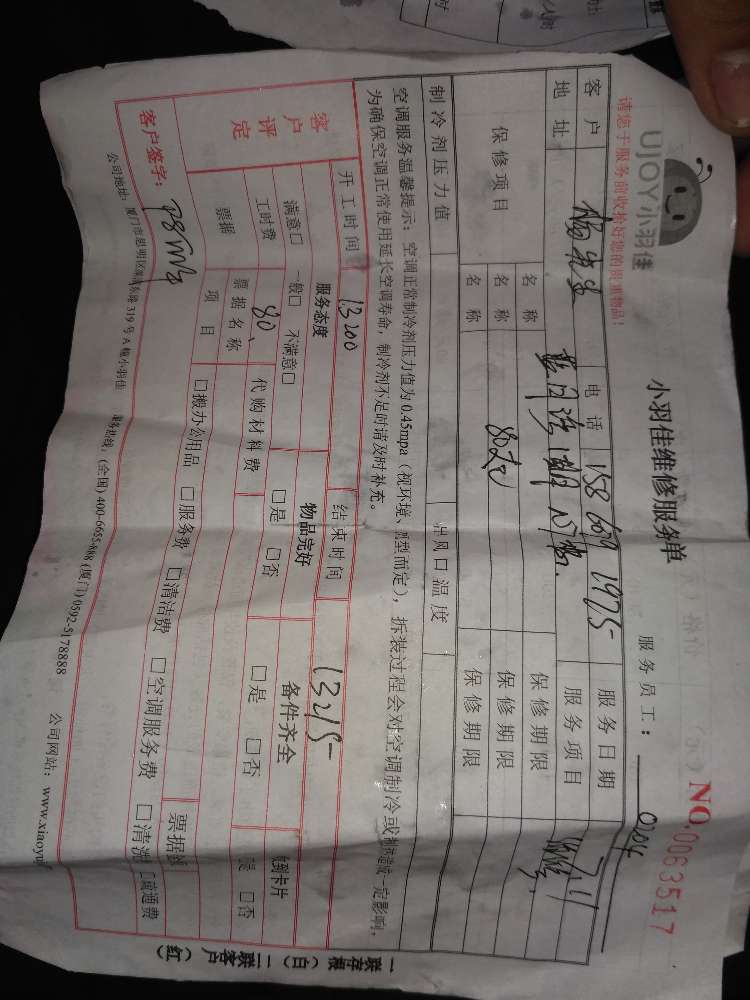 UJOY小羽佳
小羽佳维修服务单
NO.0063517
请您于服务前收捡好您的贵重物品!
服务员工:
客户
电话 158 6009 1975
服务日期
地址
服务项目
保修项目
名称
保修期限
名称 80元
保修期限
名称
保修期限
制冷剂压力值
出风口温度
空调服务温馨提示:空调正常制冷剂压力值为0.45mpa(视环境、机型而定),拆装过程会对空调制冷或制热造成一定影响,
为确保空调正常使用延长空调寿命,制冷剂不足时请及时补充。
开工时间 13:00
结束时间 13:45
客户评定
服务态度
物品完好
备件齐全
满意□ 一般□ 不满意□
□是 □否
□是 □否
□否
工时费 80
代购材料费
票据
票据名称
项目
□搬办公用品 □服务费 □清洁费 □空调服务费 □清洗
客户签字:
公司地址:厦门市思明区 319号A幢小羽佳 服务热线:(全国)400-6655-888 (厦门)0592-5178888 公司网站:www.xiaoyu
一联存根(白)二联客户(红)